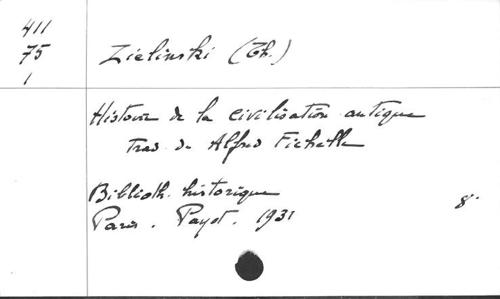 411
75
1
Zielinski (Th.)
Histoire de la civilisation antique
trad de Alfred Fichelle
Biblioth. historique
Paris. Payot. 1931
8°